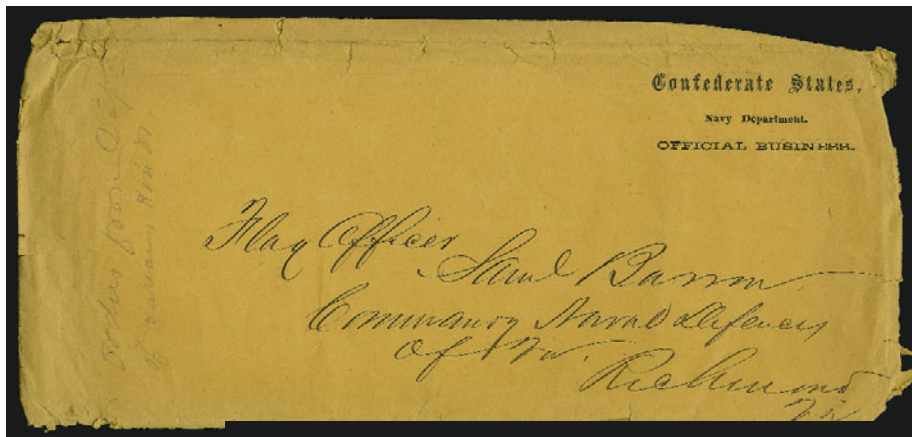 Confederate States,
Navy Department.
OFFICIAL BUSINESS.
Flag Officer
Saml Barron
Commandg Naval Defences
of Va.
Richmond
Va